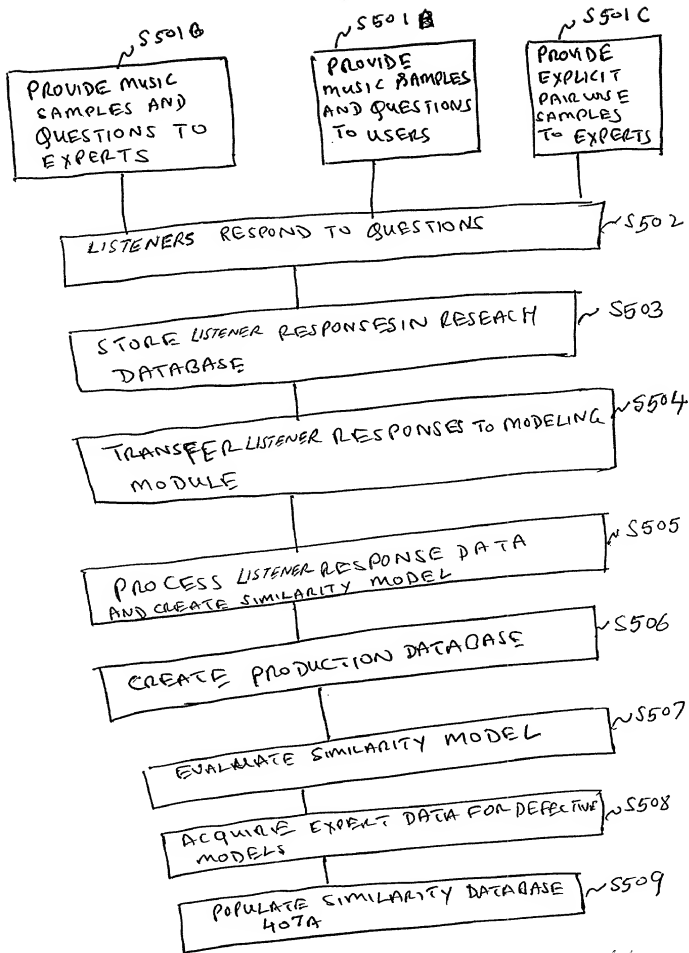 S501B
S501B
S501C
PROVIDE MUSIC
SAMPLES AND
QUESTIONS TO
EXPERTS
PROVIDE
MUSIC SAMPLES
AND QUESTIONS
TO USERS
PROVIDE
EXPLICIT
PAIRWISE
SAMPLES
TO EXPERTS
LISTENERS RESPOND TO QUESTIONS
S502
STORE LISTENER RESPONSES IN RESEACH
DATABASE
S503
TRANSFER LISTENER RESPONSES TO MODELING
MODULE
S504
PROCESS LISTENER RESPONSE DATA
AND CREATE SIMILARITY MODEL
S505
CREATE PRODUCTION DATABASE
S506
EVALAUATE SIMILARITY MODEL
S507
ACQUIRE EXPERT DATA FOR DEFECTIVE
MODELS
S508
POPULATE SIMILARITY DATABASE
407A
S509